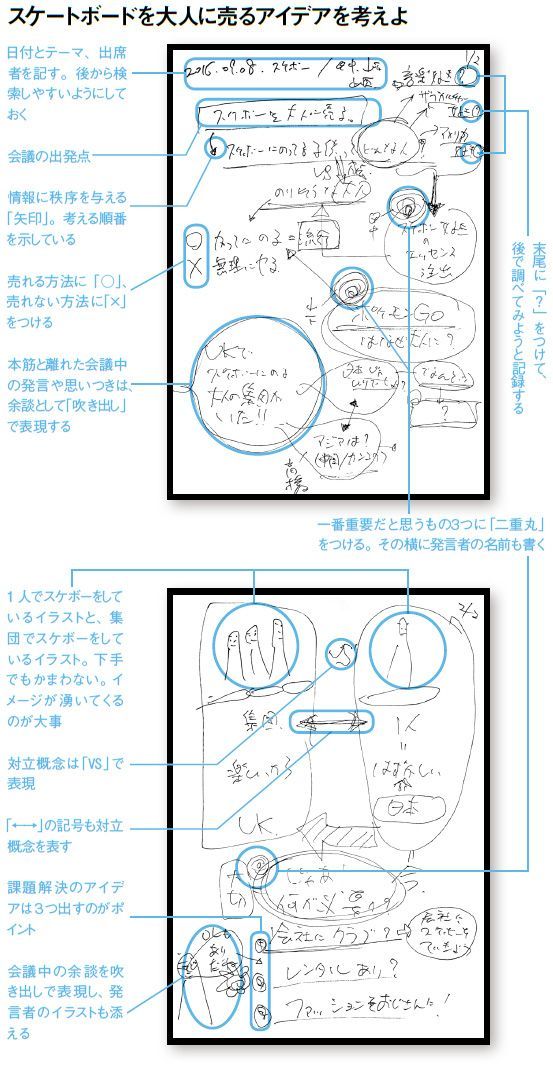 スケートボードを大人に売るアイデアを考えよ
日付とテーマ、出席
者を記す。後から検
索しやすいようにして
おく
会議の出発点
情報に秩序を与える
「矢印」。考える順番
を示している
売れる方法に「○」、
売れない方法に「×」
をつける
本筋と離れた会議中
の発言や思いつきは、
余談として「吹き出し」
で表現する
1/2
2016.09.08.スケボー/
スケボーを大人に売る。
VS
○
×
無理にやる
流行
スケボー
エッセンス
注出
ポケモンGO
はなぜ大人に?
UKで
スケボーにのる
大人の集団が
いた!!
アジアは?
?
末尾に「?」をつけて、
後で調べてみようと記録する
一番重要だと思うもの3つに「二重丸」
をつける。その横に発言者の名前も書く
1人でスケボーをして
いるイラストと、集
団でスケボーをして
いるイラスト。下手
でもかまわない。イ
メージが湧いてくる
のが大事
対立概念は「VS」で
表現
「←→」の記号も対立
概念を表す
課題解決のアイデ
アは3つ出すのがポ
イント
会議中の余談を吹
き出しで表現し、発
言者のイラストも添
える
2/2
VS
集団
1人
=
楽しいから
はずかしい
日本
UK.
大切
じゃあ
何が必要か?
会社にクラブ?
会社に
レンタルあり?
ファッションをおじさんに!